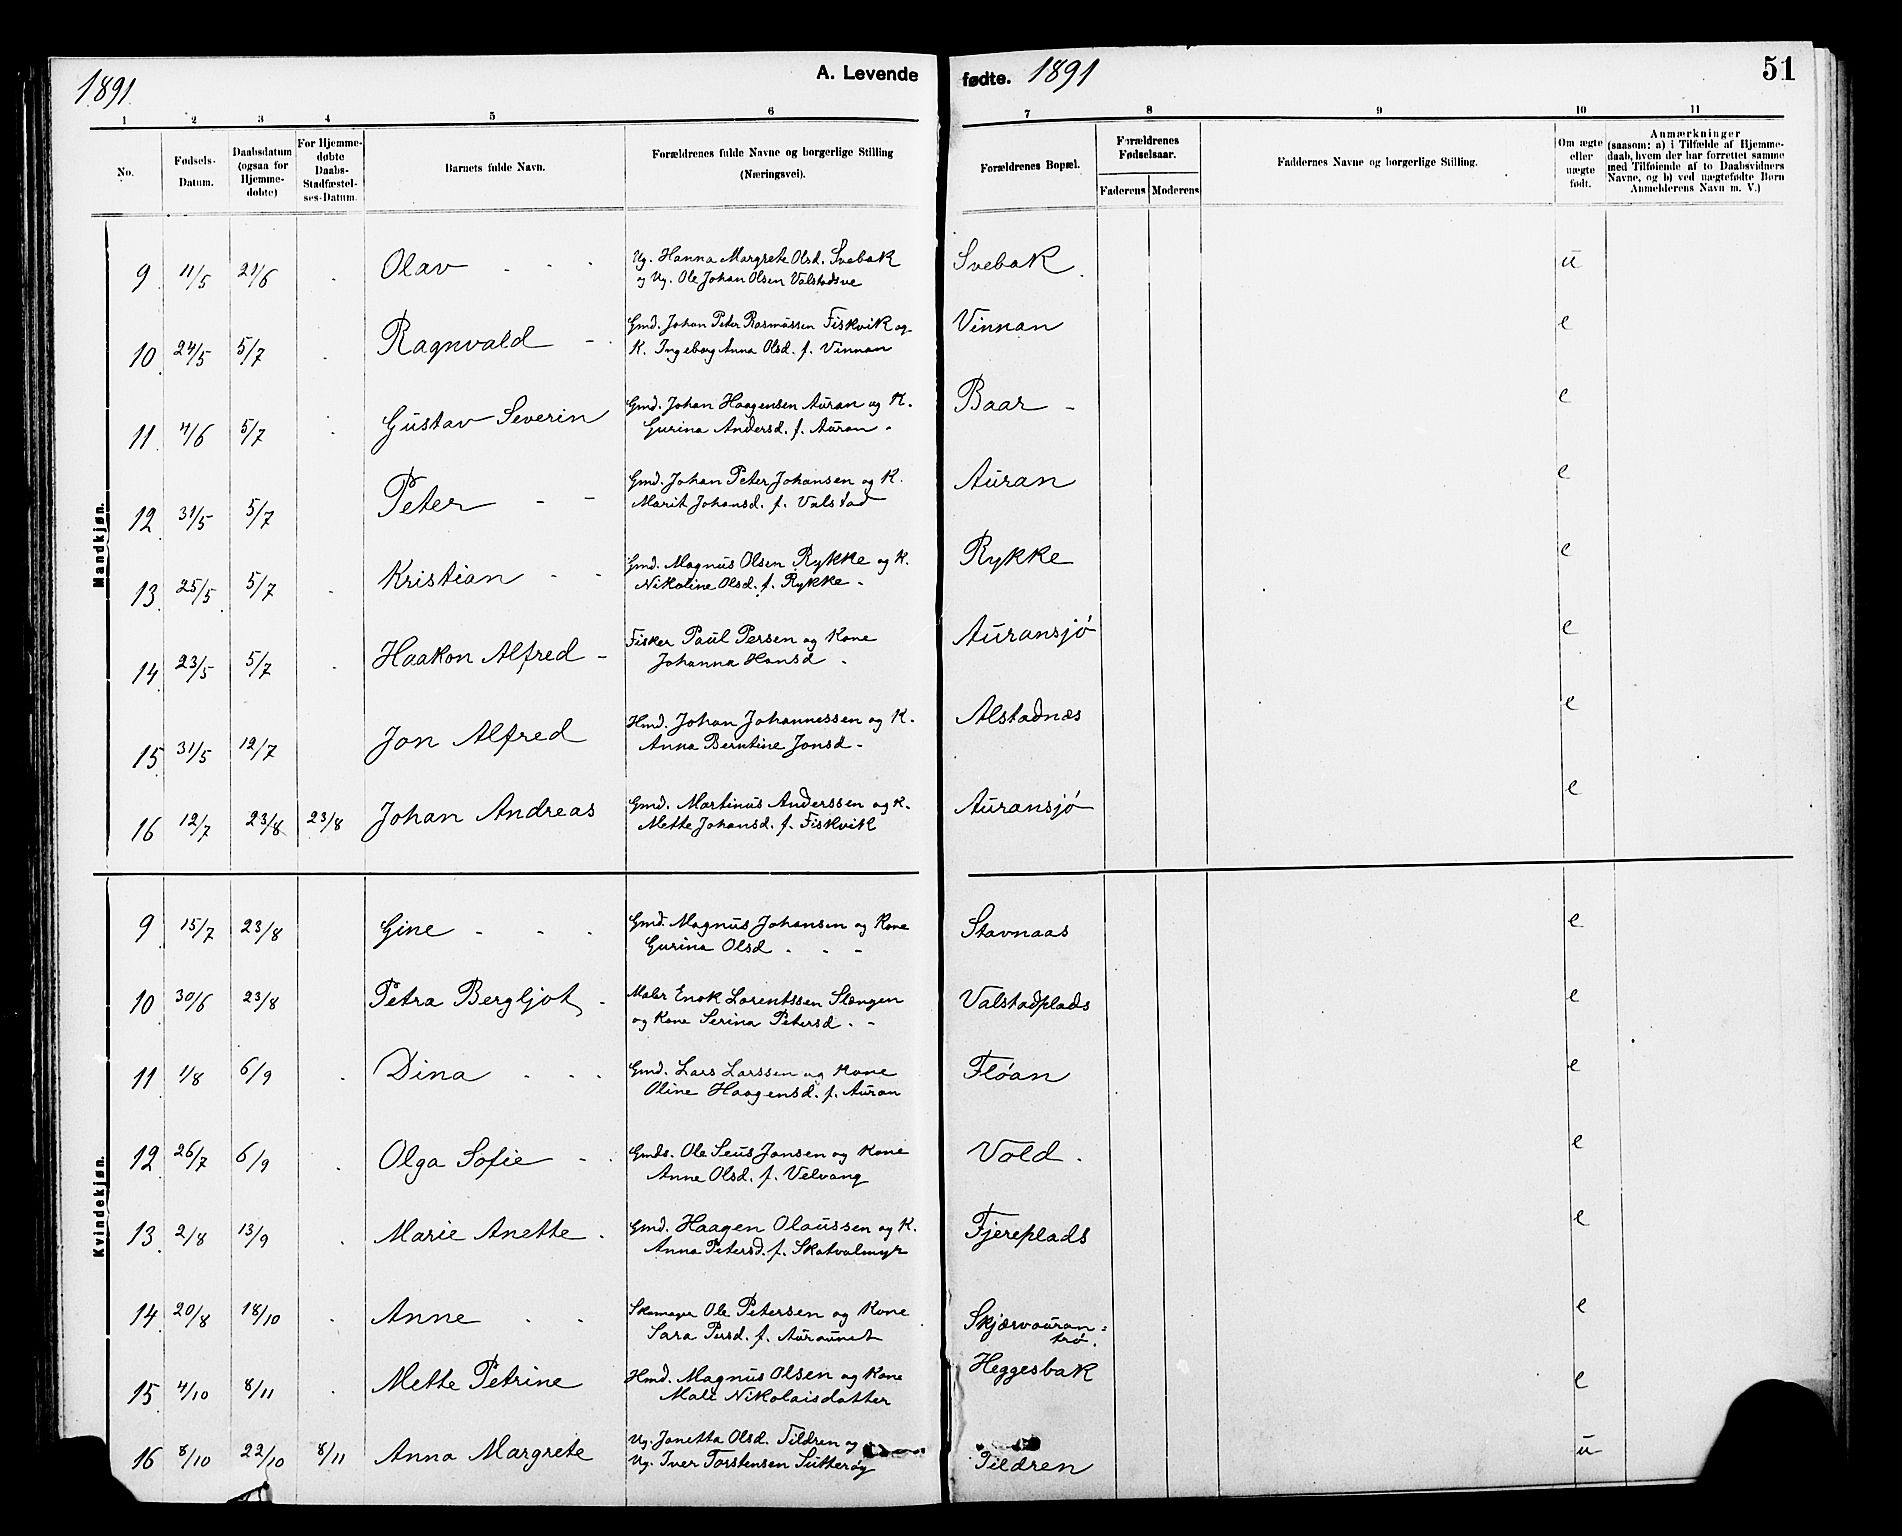 1891.
A. Levende fødte. 1891
51
1 2 3 4 5 6 7 8 9 10 11
No.
Fødsels-Datum.
Daabsdatum (ogsaa for Hjemme-døbte)
For Hjemme-døbte Daabs-Stadfæstel-ses-Datum.
Barnets fulde Navn.
Forældrenes fulde Navne og borgerlige Stilling (Næringsvei).
Forældrenes Bopæl.
Forældrenes Fødselsaar.
Faderens Moderens
Faddernes Navne og borgerlige Stilling.
Om ægte eller uægte født.
Anmærkninger (saasom: a) i Tilfælde af Hjemme-daab, hvem der har forrettet samme med Tilføiende af to Daabsvidners Navne, og b) ved uægtefødte Børn Anmelderens Navn m. V.)
Mandkjøn.
9 11/5 21/6 Olav Ug. Hanna Margrete Olsd. Svebak Svebak. u
og Ug. Ole Johan Olsen Valstadsve
10 24/5 5/7 Ragnvald Gmd. Johan Peter Rasmussen Fiskvik og Vinnan e
K. Ingeborg Anna Olsd. f. Vinnan
11 4/6 5/7 Gustav Severin Gmd. Johan Haagensen Auran og K. Baar e
Gurina Andersd. f. Auran
12 31/5 5/7 Peter Gmd. Johan Peter Johansen og K. Auran e
Marit Johansd. f. Valstad
13 25/5 5/7 Kristian Gmd. Magnus Olsen Rykke og K. Rykke e
Nikoline Olsd. f. Rykke
14 23/5 5/7 Haakon Alfred Fisker Paul Persen og Kone Auransjø e
Johanna Hansd
15 31/5 12/7 Jon Alfred Hmd. Johan Johannessen og K. Alstadnæs e
Anna Berntine Jonsd
16 12/7 23/8 23/8 Johan Andreas Gmd. Martinus Anderssen og K. Auransjø e
Mette Johansd. f. Fiskvik
Kvindekjøn.
9 15/7 23/8 Gine Gmd. Magnus Johansen og Kone Stavnaas e
Gurina Olsd
10 30/6 23/8 Petra Bergljot Maler Enok Lorentssen Slengen Valstadplads e
og Kone Serina Petersd
11 1/8 6/9 Dina Gmd. Lars Larssen og Kone Fløan e
Oline Haagensd. f. Auran
12 26/7 6/9 Olga Sofie Gmds. Ole Seus Jonsen og Kone Vold. e
Anne Olsd. f. Velvang
13 2/8 13/9 Marie Anette Gmd. Haagen Olaussen og K. Fjereplads e
Anna Petersd. f. Skatvalmyr
14 20/8 18/10 Anne Skomager Ole Petersen og Kone Skjærvauran= e
Sara Persd. f. Auraunet trø.
15 4/10 8/11 Mette Petrine Hmd. Magnus Olsen og Kone Heggesbak e
Mali Nikolaisdatter
16 8/10 22/10 8/11 Anna Margrete Ug. Jonetta Olsd. Tildren og Tildren u
Ug. Iver Torstensen Sutterøy